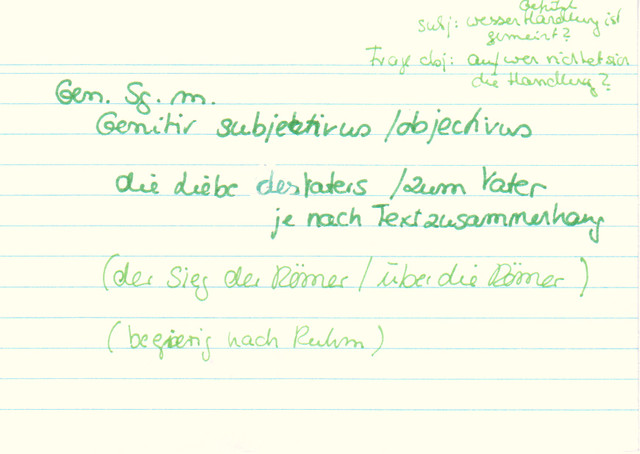 subj: wessen Handlung ist
gemeint?
Frage obj: auf wen richtet sich
die Handlung?
Gen. Sg. m.
Genitiv subjektivus / objectivus
die Liebe des Vaters / zum Vater
je nach Textzusammenhang
(der Sieg der Römer / über die Römer)
(begierig nach Ruhm)